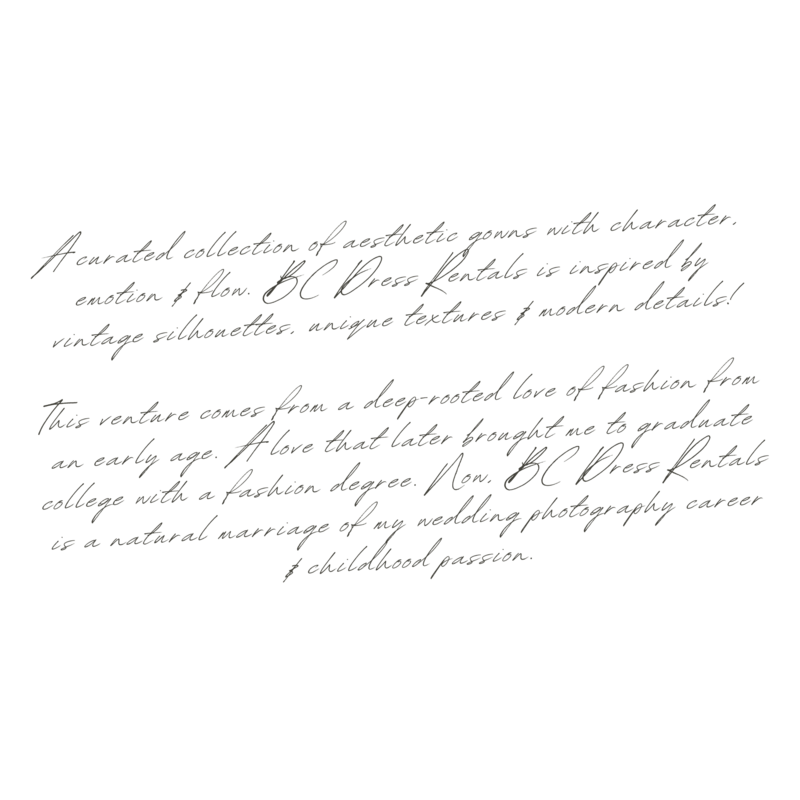 A curated collection of aesthetic gowns with character,
emotion & flow. BC Dress Rentals is inspired by
vintage silhouettes, unique textures & modern details!
This venture comes from a deep-rooted love of fashion from
an early age. A love that later brought me to graduate
college with a fashion degree. Now, BC Dress Rentals
is a natural marriage of my wedding photography career
& childhood passion.